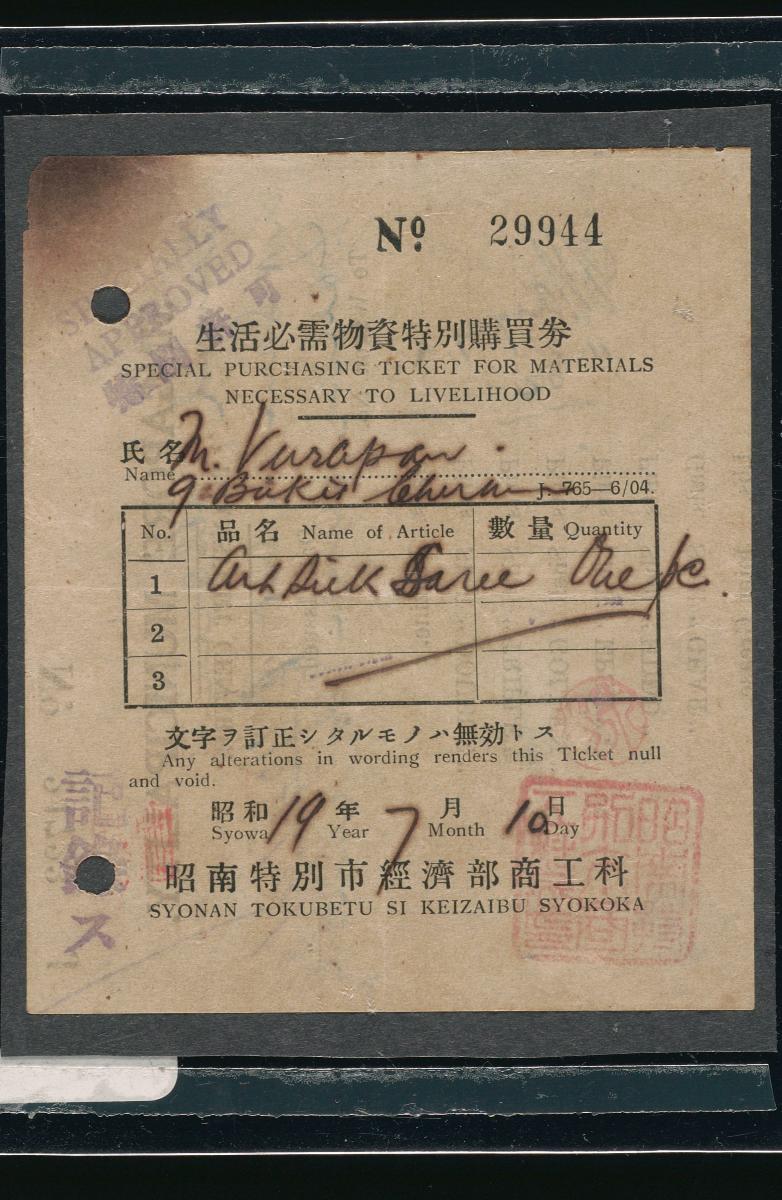 No. 29944
SPECIALLY
APPROVED
生活必需物資特別購買券
SPECIAL PURCHASING TICKET FOR MATERIALS
NECESSARY TO LIVELIHOOD
氏名 M. Vurapan.
Name
9 Bukit J. 765—6/04.
No. 品名 Name of Article 數量 Quantity
1 Art Silk Saree One pc.
2
3
文字ヲ訂正シタルモノハ無効トス
Any alterations in wording renders this Ticket null
and void.
昭和 19 年 7 月 10 日
Syowa Year Month Day
昭南特別市經濟部商工科
SYONAN TOKUBETU SI KEIZAIBU SYOKOKA